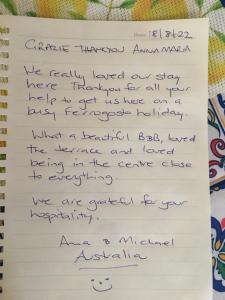 18/8/22
GRAZIE THANKYOU ANNAMARIA
We really loved our stay
here. Thankyou for all your
help to get us here on a
busy Ferrogosto holiday.
What a beautiful B&B, loved
the terrace and loved
being in the centre close
to everything.
We are grateful for your
hospitality.
Anna & Michael
Australia